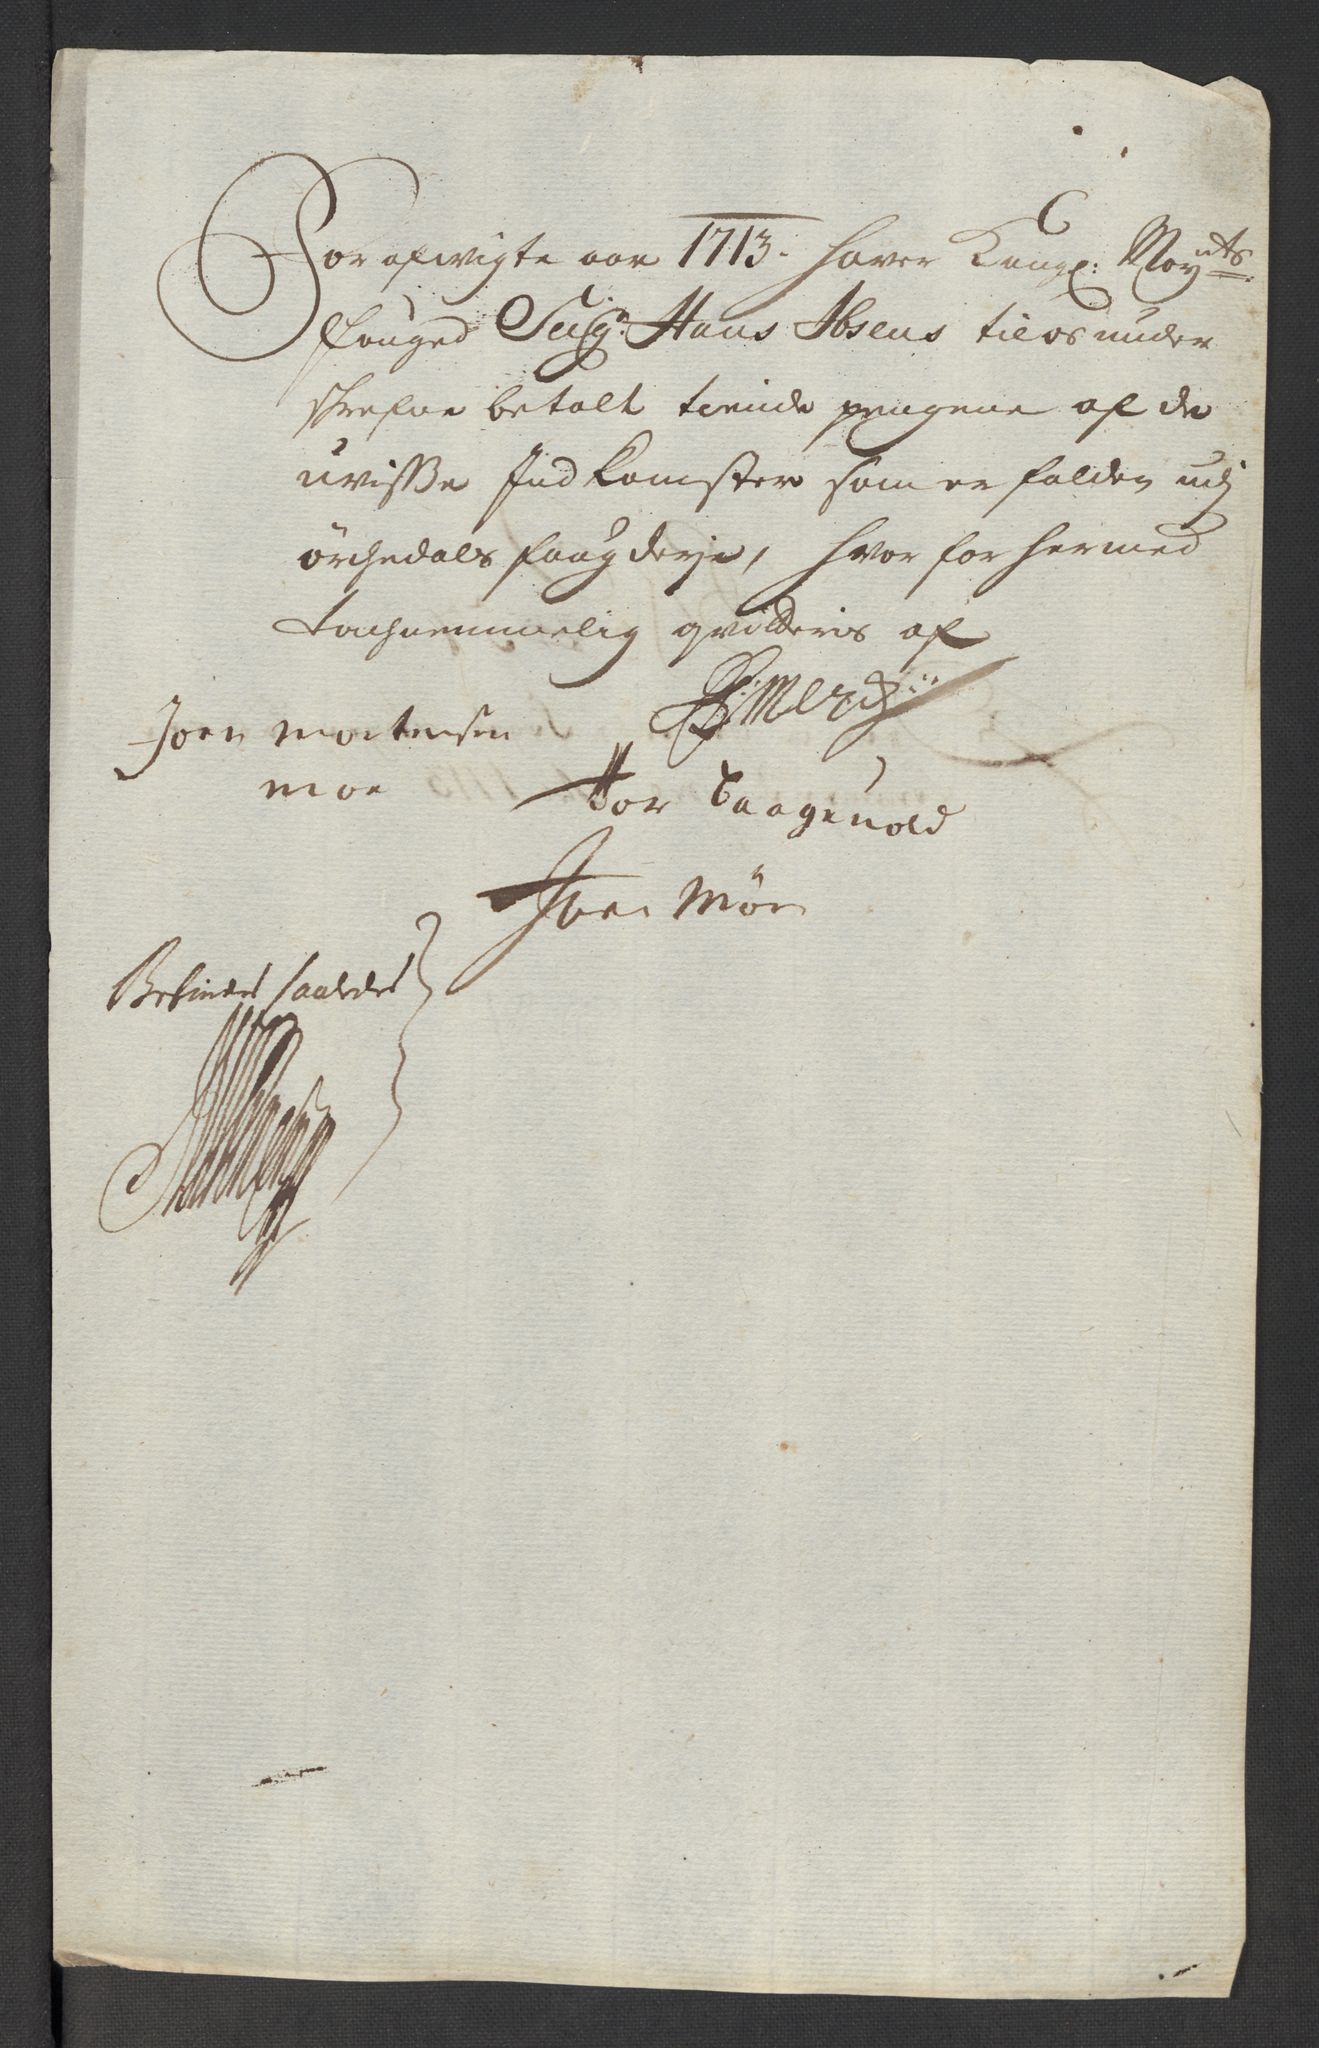 For afvigte aar 1713. haver Kongl: May<sup>ts</sup>
fouged Seig<sup>r</sup>. Hans Ibsens til os under
skrefne betalt tiende pengene af de
uvisse Indkomster som er falden udj
örchedals fougderje, hvor for hermed
tachnemmelig qvitteris af
Joen Mortensen
moe
Tor Saagenold
Joen Mör
Befindes saaledes